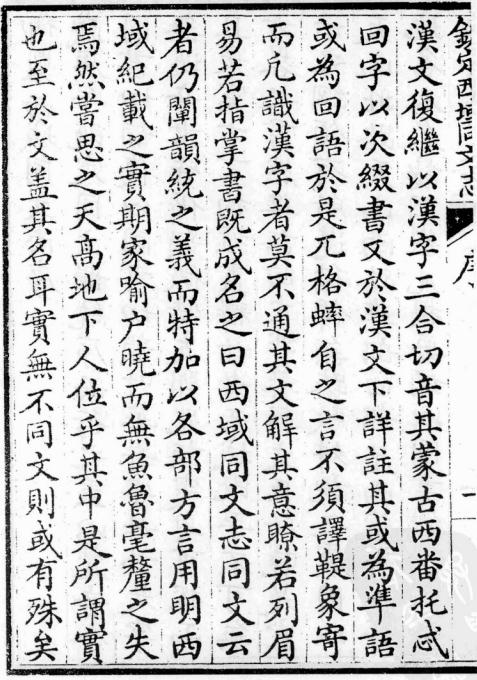 欽定西域同文志
序
一
漢文復繼以漢字三合切音其蒙古西番托忒
回字以次綴書又於漢文下詳註其或為準語
或為回語於是兀格蟀自之言不須譯鞮象寄
而凡識漢字者莫不通其文解其意瞭若列眉
易若指掌書既成名之曰西域同文志同文云
者仍闡韻統之義而特加以各部方言用明西
域紀載之實期家喻户曉而無魚魯毫釐之失
焉然嘗思之天高地下人位乎其中是所謂實
也至於文盖其名耳實無不同文則或有殊矣